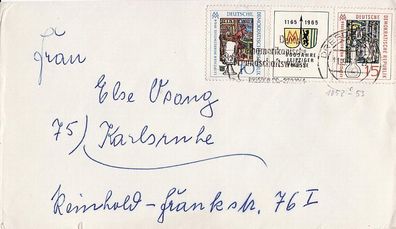 DEUTSCHE DEMOKRATISCHE REPUBLIK
10
1165 1965
800 JAHRE
LEIPZIGER
MESSE
DEUTSCHE DEMOKRATISCHE REPUBLIK
15
1052 - 53
Frau
Else Osang
75) Karlsruhe
Reinhold-Frankstr. 76 I